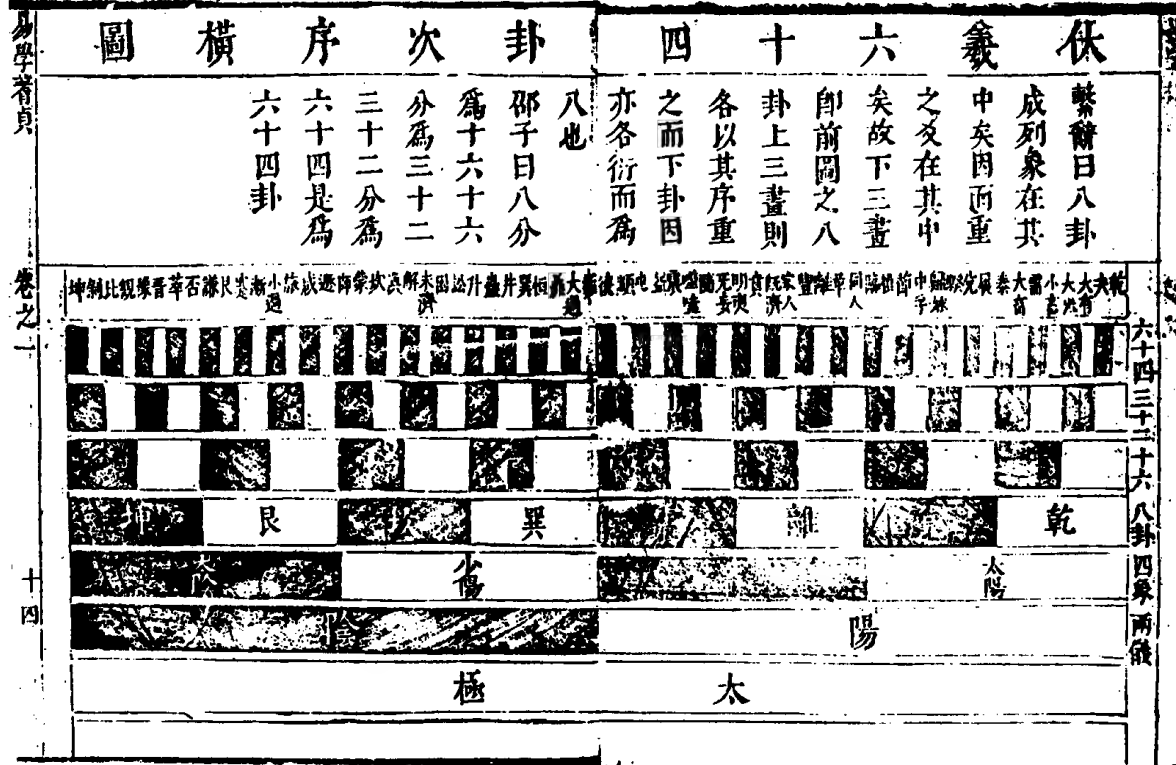 伏羲六十四卦次序橫圖
繫辭曰八卦
成列象在其
中矣因而重
之爻在其中
矣故下三畫
卽前圖之八
卦上三畫則
各以其序重
之而下卦因
亦各衍而爲
八也
邵子曰八分
爲十六十六
分爲三十二
三十二分爲
六十四是爲
六十四卦
乾夬大有大壯小畜需大畜泰履兌睽歸妹中孚節損臨同人革離豐家人旣濟賁明夷无妄隨噬嗑震益屯頤復
姤大過鼎恒巽井蠱升訟困未濟解渙坎蒙師遯咸旅小過漸蹇艮謙否萃晉豫觀比剝坤
六十四
三十二
十六
八卦
乾 離 巽 艮 坤
四象
太陽 少陽 太陰
兩儀
陽 陰
太極
易學蓍貞
卷之一
十四